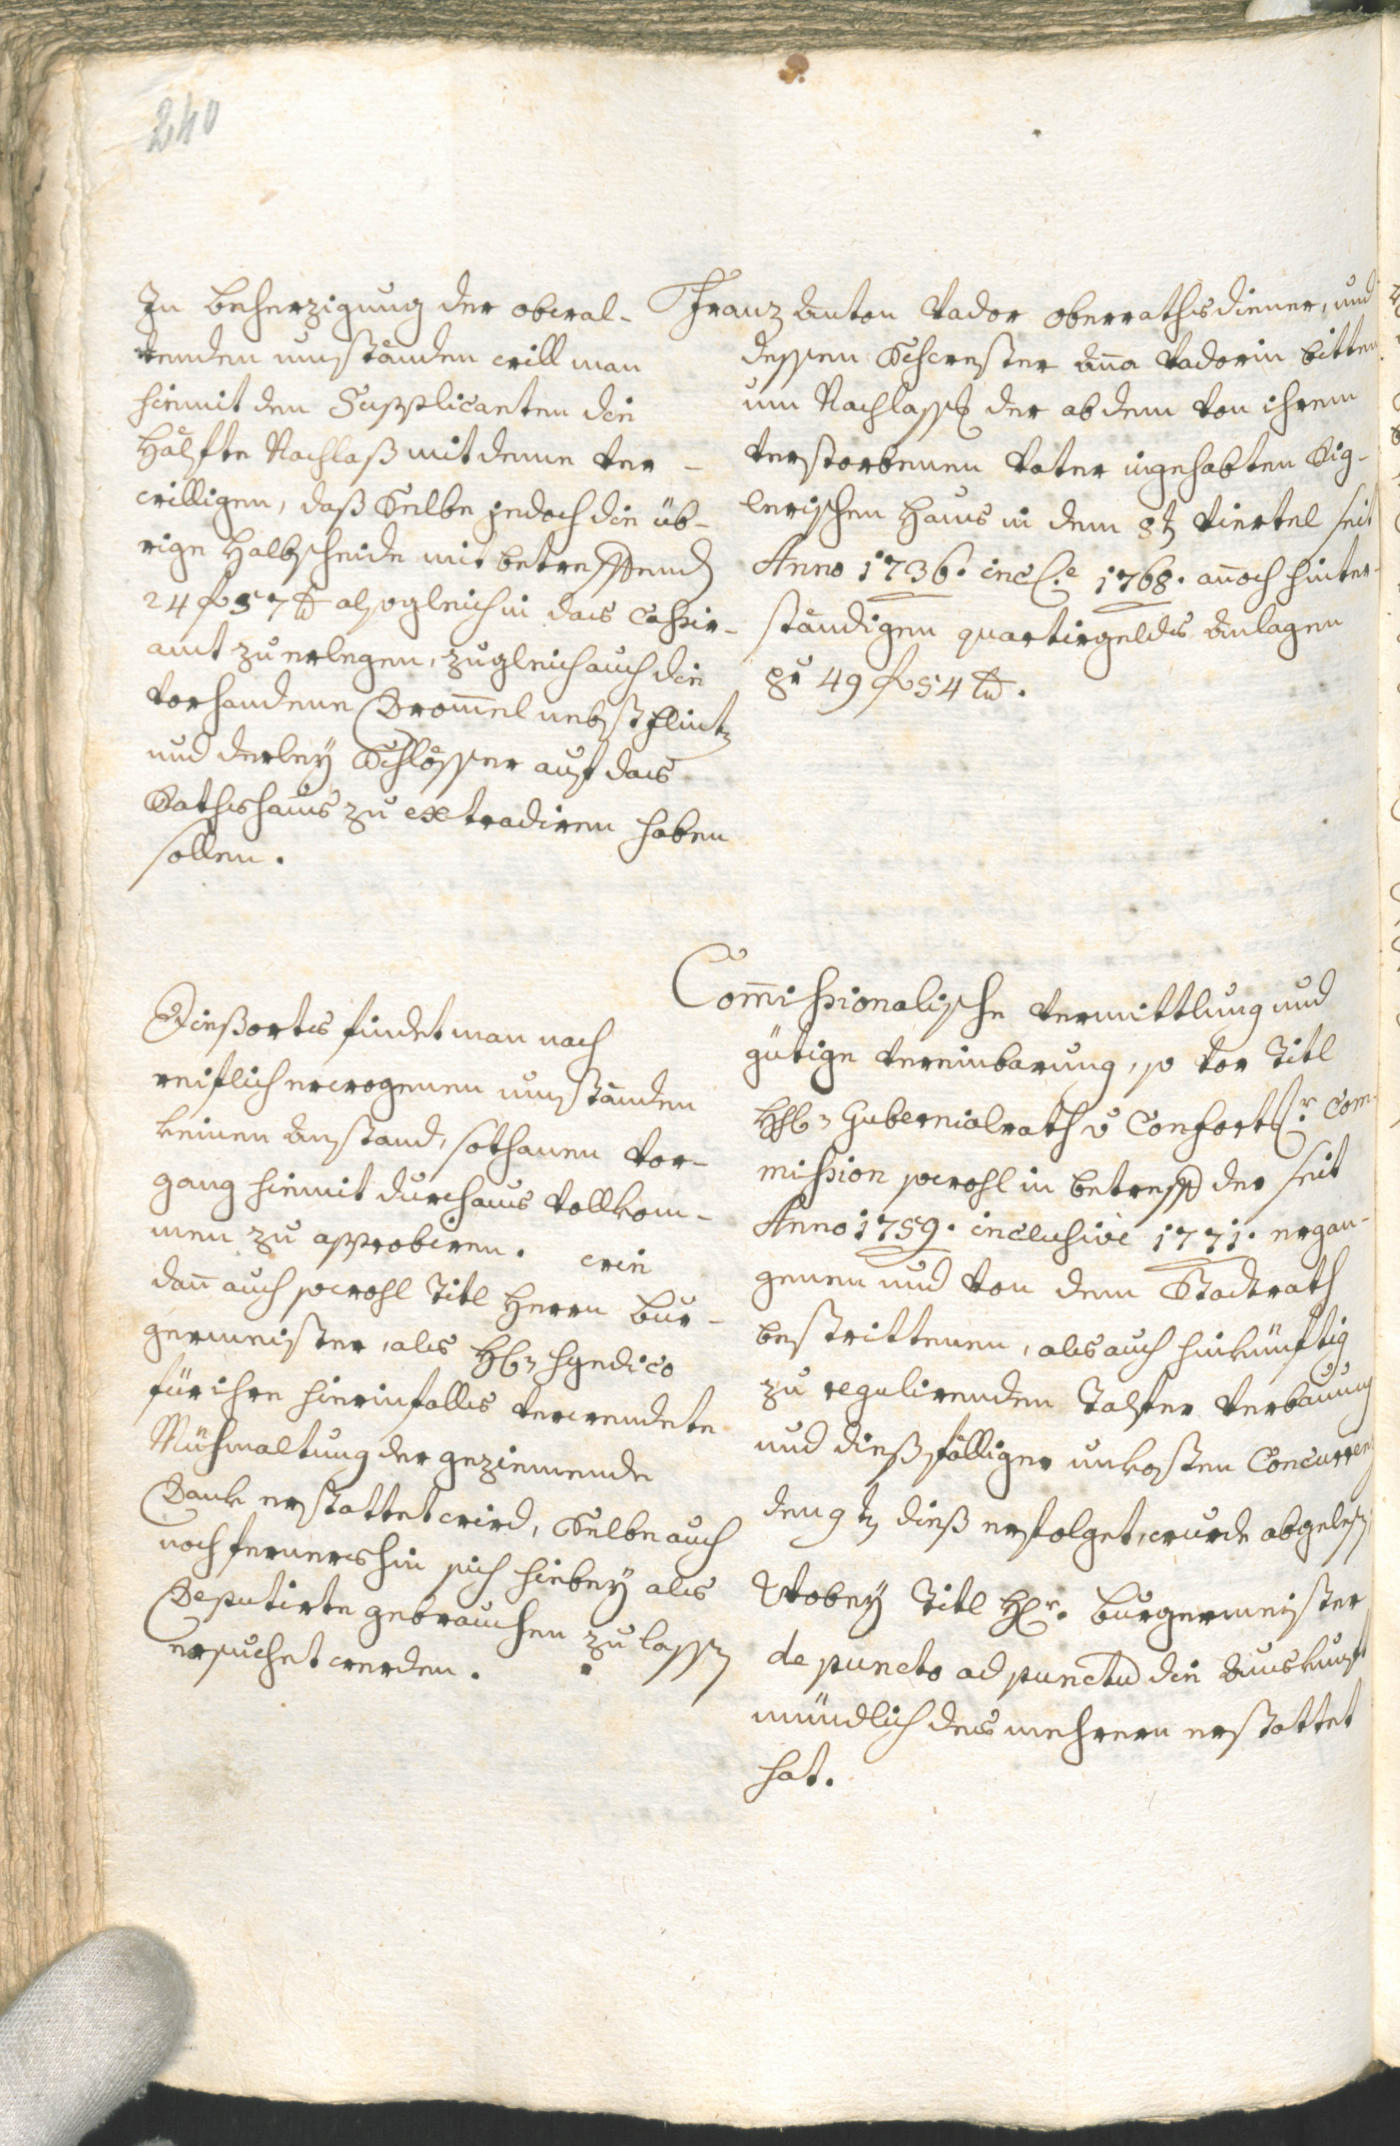 240
In beherzigung der obwal-
tenden umständen will man
hiemit den Supplicanten die
Hälfte Nachlaß mit deme ver-
willigen, daß Selbe jedoch die üb-
rige Halbscheide mit betreffend
24 f 57 x alsogleich in das Cassier-
amt zu erlegen, zugleich auch die
vorhandene Drommel nebst flintn
und derley Schlösser auf das
Rathshaus zu extradiren haben
sollen.
Franz Anton Vador oberrathsdiener, und
dessen Schwester Aña Vadorin bitten
um Nachlaß der ab dem von ihrem
verstorbenen Vater ingehabten Sig-
lerischen Haus in dem 8t Viertel seit
Anno 1736. incl.e 1768. añoch hinter-
ständigen quartiergelds Anlagen
zu 49 f 54 x.
Dießorts findet man nach
reiflich erwogenen umständen
keinen Anstand, sothanen Vor-
gang hiemit durchaus vollkom-
men zu approbiren. wie
dañ auch sowohl Titl Herrn Bur-
germeister, als Hrn Syndico
für ihre hierinfalls verwendete
Mühwaltung der geziemende
Dank erstattet wird, Selbe auch
noch fernershin sich hiebey als
Deputirte gebrauchen zu lassn
ersuchet werden.
Com̄issionalische Vermittlung und
gütige Vereinbarung, so vor Titl
Hrn Gubernialrath v Confort r Com-
mission sowohl in betreff der seit
Anno 1759. inclusivè 1771. ergan-
genen und von dem Stadtrath
bestrittenen, als auch hinkünftig
zu regulirenden Talfer Verbauung
und dießfälliger unkosten Concurrenz
den 9t dieß erfolget, wurde abgelesn
Wobey Titl Hr. Burgermeister
de puncto ad punctum die Auskunft
mündlich des mehrern erstattet
hat.